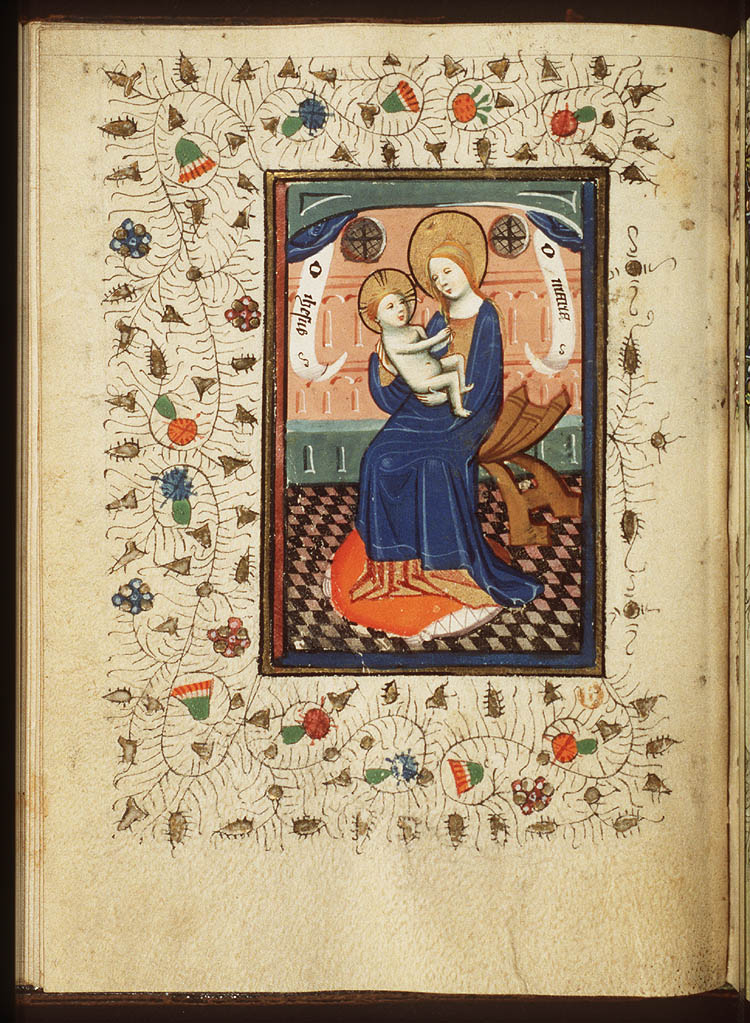 O ihesus
O maria